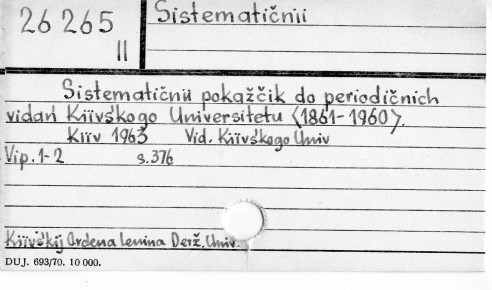 26 265
II
Sistematičnii
Sistematičnii pokažčik do periodičnich
vidań Kiïvśkogo Universitetu <1861-1960>.
Kiïv 1963 Vid. Kiïvśkogo Univ
Vip. 1-2 s. 376
Kiïvśkij Ordena Lenina Derž. Univ.
DUJ. 693/70. 10 000.